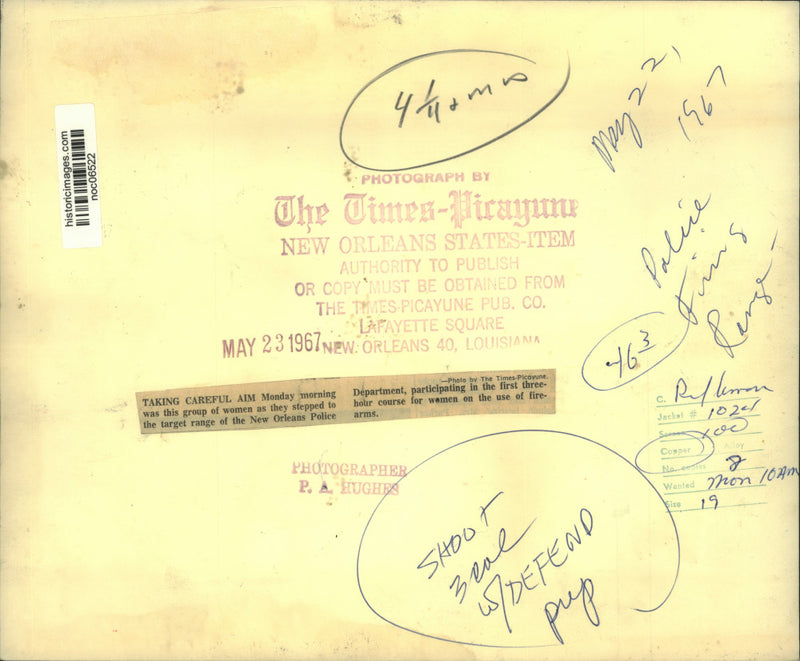 May 22,
1967
historicimages.com
noc06522
PHOTOGRAPH BY
The Times-Picayune
NEW ORLEANS STATES-ITEM
AUTHORITY TO PUBLISH
OR COPY MUST BE OBTAINED FROM
THE TIMES-PICAYUNE PUB. CO.
LAFAYETTE SQUARE
NEW ORLEANS 40, LOUISIANA
MAY 23 1967
Police
Firing
Range
46 3
—Photo by The Times-Picayune.
TAKING CAREFUL AIM Monday morning
was this group of women as they stepped to
the target range of the New Orleans Police
Department, participating in the first three-
hour course for women on the use of fire-
arms.
C.
Jacket # 1024
Screen 100
Copper Alloy
No. copies 8
Wanted Mon 10 AM
Size 19
PHOTOGRAPHER
P. A. HUGHES
SHOOT
3 col
w/DEFEND